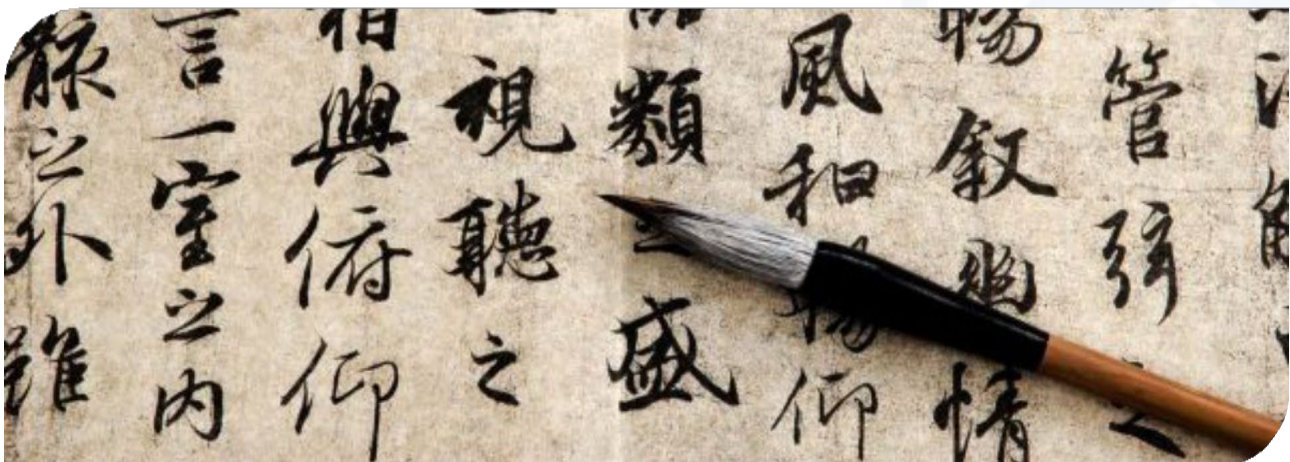 管弦之
暢叙幽情
風和暢仰
類之盛
視聽之
相與俯仰
言一室之内
骸之外雖